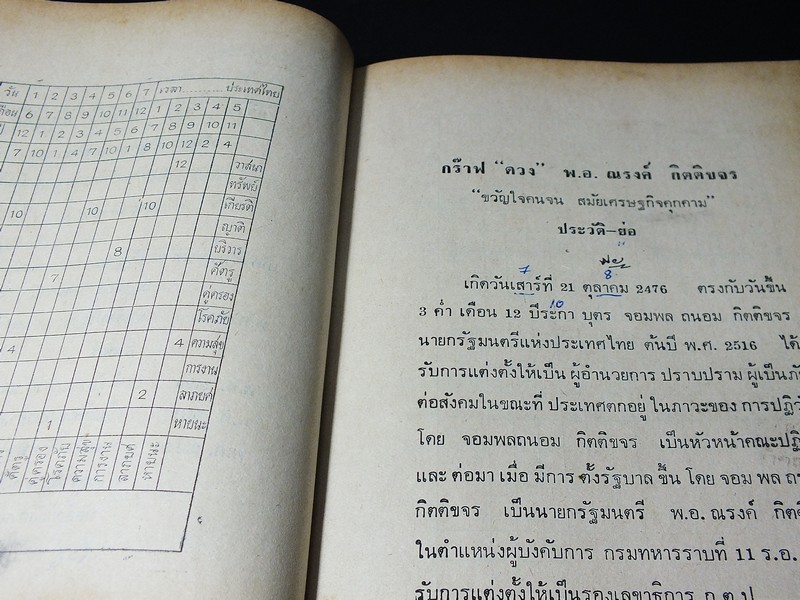 วัน 1 2 3 4 5 6 7 เวลา..........ประเทศไทย
6 7 8 9 10 11 12 1 2 3 4 5
12 1 2 3 4 5 6 7 8 9 10 11
7 10 1 4 7 10 1 8 10 12 2 4
12 วาสนา
ทรัพย์
10 10 10 เกียรติ
ญาติ
8 บริวาร
ศัตรู
7 คู่ครอง
โรคภัย
4 4 ความสุข
การงาน
2 ลาภยศ
1 หายนะ
ศัตรู คู่ครอง โรคภัย ความสุข การงาน ลาภยศ หายนะ
กร๊าฟ "ดวง" พ.อ. ณรงค์ กิตติขจร
"ขวัญใจคนจน สมัยเศรษฐกิจคุกคาม"
ประวัติ-ย่อ
7 8
เกิดวันเสาร์ที่ 21 ตุลาคม 2476 ตรงกับวันขึ้น
10
3 ค่ำ เดือน 12 ปีระกา บุตร จอมพล ถนอม กิตติขจร
นายกรัฐมนตรีแห่งประเทศไทย ต้นปี พ.ศ. 2516 ได้
รับการแต่งตั้งให้เป็น ผู้อำนวยการ ปราบปราม ผู้เป็นภั
ต่อสังคมในขณะที่ ประเทศตกอยู่ ในภาวะของ การปฏิวั
โดย จอมพลถนอม กิตติขจร เป็นหัวหน้าคณะปฏิ
และ ต่อมา เมื่อ มีการ ตั้งรัฐบาล ขึ้น โดย จอม พล ถ
กิตติขจร เป็นนายกรัฐมนตรี พ.อ. ณรงค์ กิตติ
ในตำแหน่งผู้บังคับการ กรมทหารราบที่ 11 ร.อ.
รับการแต่งตั้งให้เป็นรองเลขาธิการ ก.ต.ป.